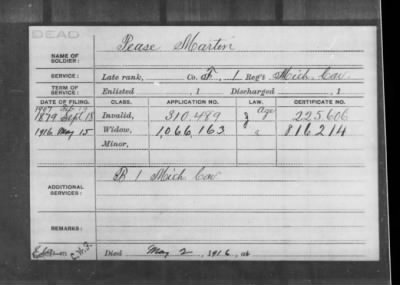 DEAD
NAME OF SOLDIER: Pease Martin
SERVICE: Late rank, Co. F, 1 Reg't Mich. Cav
TERM OF SERVICE: Enlisted , 1 Discharged , 1
DATE OF FILING. CLASS. APPLICATION NO. LAW. CERTIFICATE NO.
1907
1879 Sept 18 Invalid, 310,489 Age 225,606
1916 May 15 Widow, 1,066,163 " 816214
Minor,
ADDITIONAL SERVICES: B 1 Mich Cav
REMARKS:
Died May 2, 1916, at